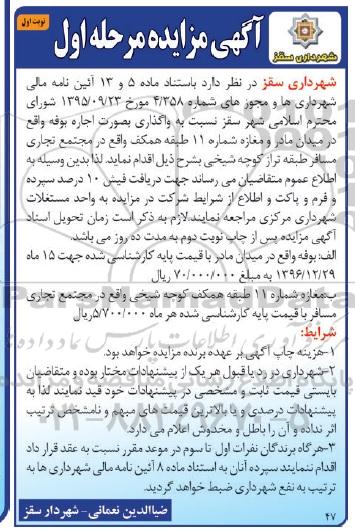 نوبت اول
آگهی مزایده مرحله اول
شهرداری سقز
شهرداری سقز در نظر دارد باستناد ماده ۵ و ۱۳ آئین نامه مالی
شهرداری ها و مجوز های شماره ۴/۳۵۸ مورخ ۱۳۹۵/۰۹/۲۳ شورای
محترم اسلامی شهر سقز نسبت به واگذاری بصورت اجاره بوفه واقع
در میدان مادر و مغازه شماره ۱۱ طبقه همکف واقع در مجتمع تجاری
مسافر طبقه تراز کوچه شیخی بشرح ذیل اقدام نماید. لذا بدین وسیله به
اطلاع عموم متقاضیان می رساند جهت دریافت فیش ۱۰ درصد سپرده
و فرم و پاکت و اطلاع از شرایط شرکت در مزایده به واحد مستغلات
شهرداری مرکزی مراجعه نمایند. لازم به ذکر است زمان تحویل اسناد
آگهی مزایده پس از چاپ نوبت دوم به مدت ده روز می باشد.
الف: بوفه واقع در میدان مادر با قیمت پایه کارشناسی شده جهت ۱۵ ماه
۱۳۹۶/۱۲/۲۹ به مبلغ ۷۰/۰۰۰/۰۰۰ ریال
ب: مغازه شماره ۱۱ طبقه همکف کوچه شیخی واقع در مجتمع تجاری
مسافر با قیمت پایه کارشناسی شده هر ماه ۵/۷۰۰/۰۰۰ریال
شرایط:
۱-هزینه چاپ آگهی بر عهده برنده مزایده خواهد بود.
۲-شهرداری در رد یا قبول هر یک از پیشنهادات مختار بوده و متقاضیان
بایستی قیمت ثابت و مشخصی در پیشنهادات خود قید نمایند لذا به
پیشنهادات درصدی و یا بالاترین قیمت های مبهم و نامشخص ترتیب
اثر نداده و آن را باطل و مخدوش اعلام می دارد.
۳-هرگاه برندگان نفرات اول تا سوم در موعد مقرر نسبت به عقد قرار داد
اقدام ننمایند سپرده آنان به استناد ماده ۸ آئین نامه مالی شهرداری ها به
ترتیب به نفع شهرداری ضبط خواهد گردید.
ضیاالدین نعمانی- شهردار سقز
۴۷